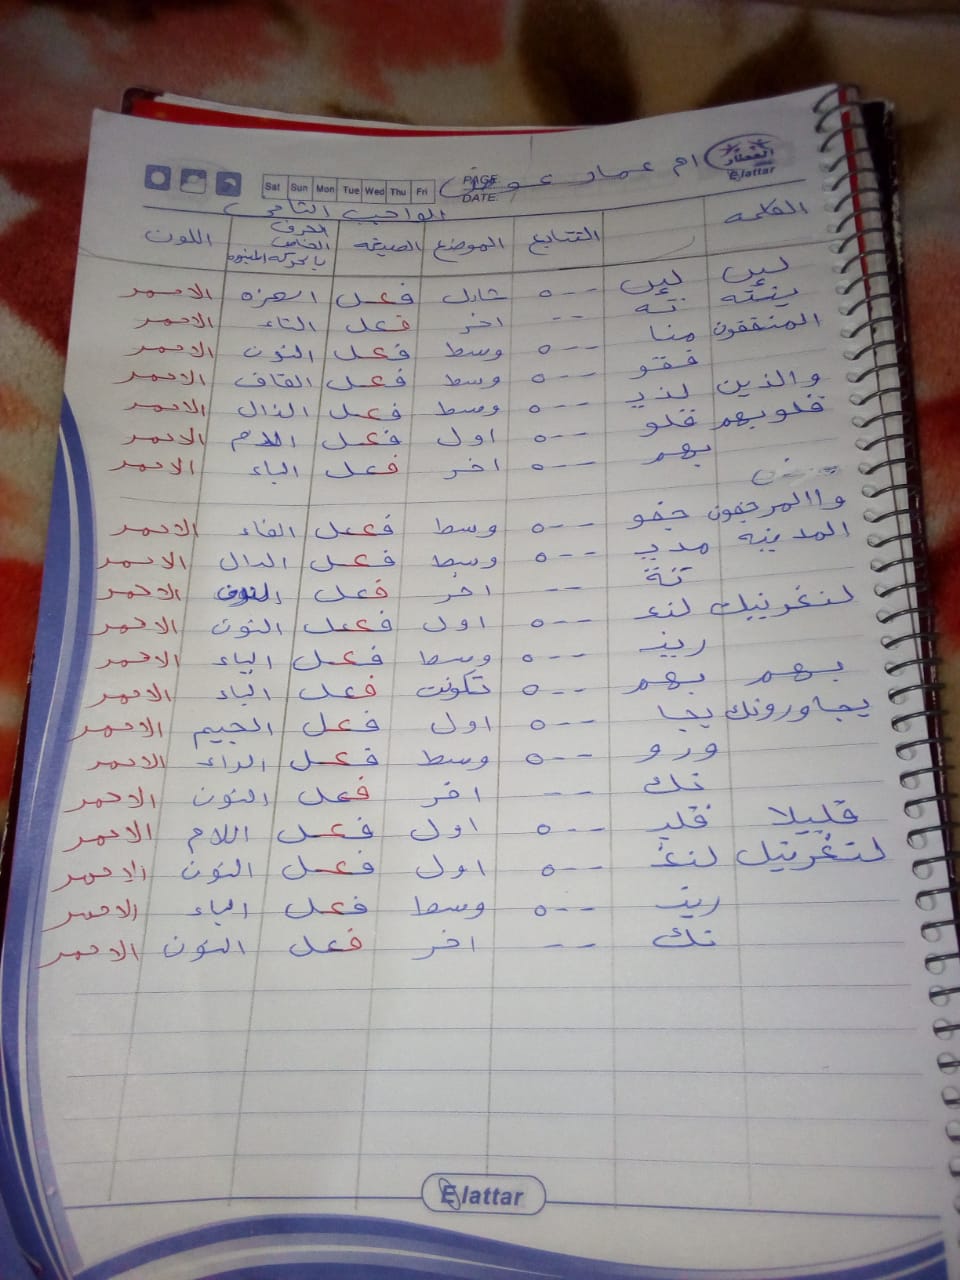 العطار
Elattar
ام عمار عوض
PAGE:
DATE:
Sat Sun Mon Tue Wed Thu Fri
الواجب الثامن
الكلمه التتابع الموضع الصيغه الحرف الخاص بالحركة المنبورة اللون
لئن لئن ---ه فعل الهمزه الاحمر
ينته ته -- اخر فعل التاء الاحمر
المنفقون منا ---ه وسط فعل النون الاحمر
فقو ---ه وسط فعل القاف الاحمر
والذين لذيـ ---ه وسط فعل الذال الاحمر
قلوبهم قلو ---ه اول فعل اللام الاحمر
بهم ---ه اخر فعل الباء الاحمر
واالمرجفون جفو ---ه وسط فعل الفاء الاحمر
المدينه مديـ ---ه وسط فعل الدال الاحمر
نة -- اخر فعل النون الاحمر
لنغرينك لنغـ ---ه اول فعل النون الاحمر
رينـ ---ه وسط فعل الياء الاحمر
بهم بهم ---ه تكونت فعل الباء الاحمر
يجاورونك يجا ---ه اول فعل الجيم الاحمر
ورو ---ه وسط فعل الراء الاحمر
نك -- اخر فعل النون الاحمر
قليلا قليـ ---ه اول فعل اللام الاحمر
لنغرينك لنغـ ---ه اول فعل النون الاحمر
رينـ ---ه وسط فعل الياء الاحمر
نك -- اخر فعل النون الاحمر
Elattar